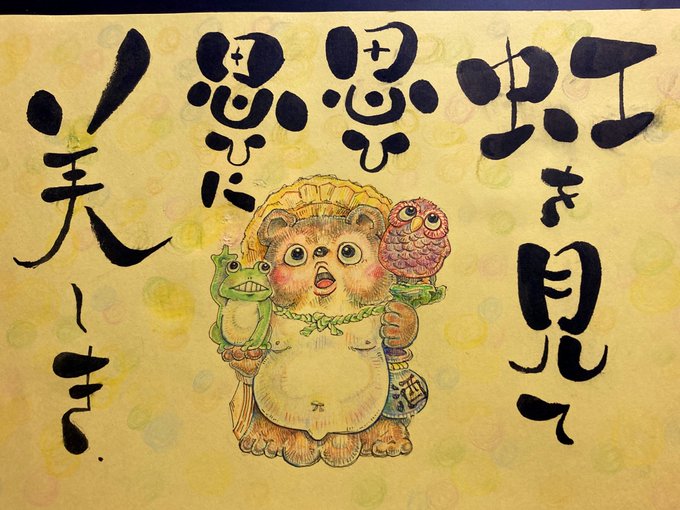 虹を見て
思ひ
思ひに
美しき
酒